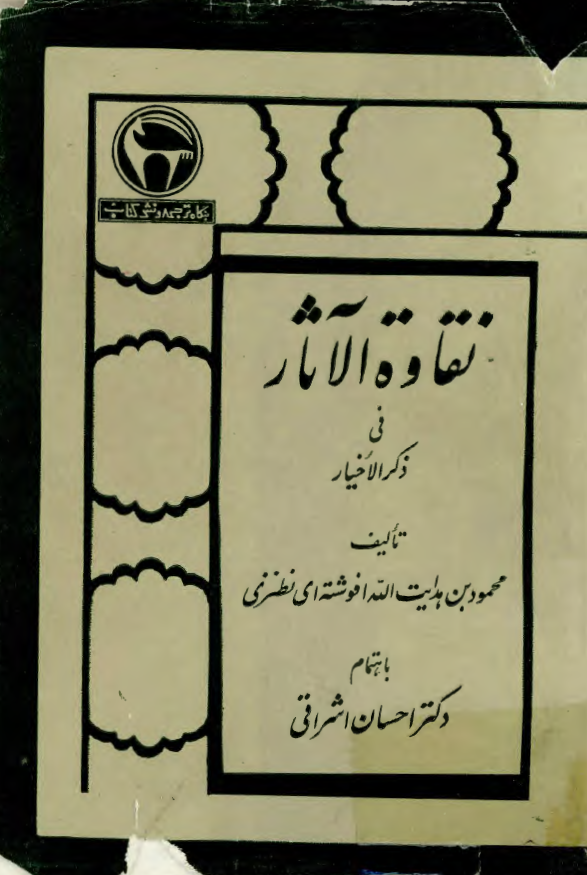 بنگاه ترجمه و نشر کتاب
نقاوة الآثار
فی
ذکر الأخیار
تألیف
محمود بن هدایت الله افوشته‌ای نطنزی
باهتمام
دکتر احسان اشراقی